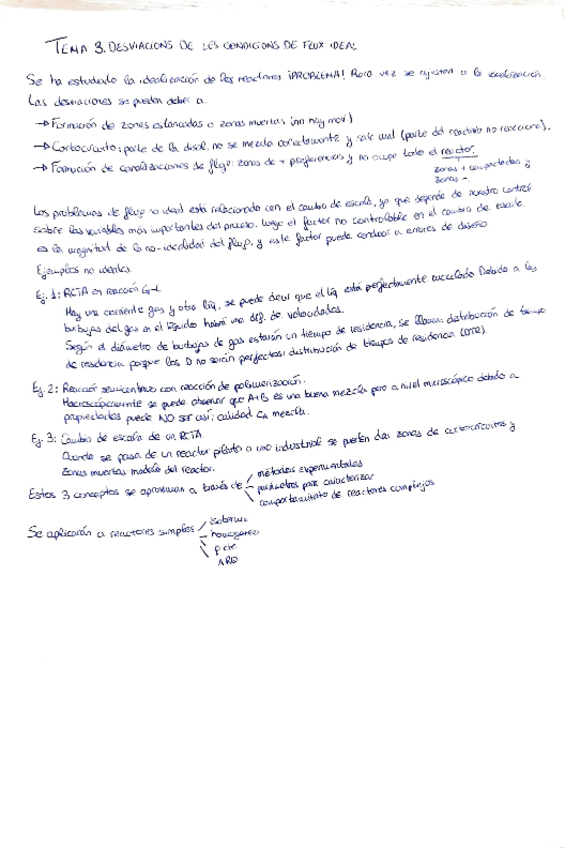 TEMA 3. DESVIACIONS DE LES CONDICIONS DE FLUX IDEAL
Se ha estudiado la idealización de los reactores ¡PROBLEMA! Poca vez se ajustan a la idealización.
Las desviaciones se pueden deber a:
→ Formación de zonas estancadas o zonas muertas (no hay mov)
→ Cortocircuito: parte de la disol. no se mezcla correctamente y sale mal (parte del reactivo no reacciona).
→ Formación de canalizaciones de flujo: zonas de + preferencias y no ocupe todo el reactor.
zonas + compactadas y
zonas -
Los problemas de flujo no ideal está relacionado con el cambio de escala, ya que depende de nuestro control
sobre las variables más importantes del proceso. luego el factor no controlable en el cambio de escala
es la magnitud de la no-idealidad del flujo, y este factor puede conducir a errores de diseño
Ejemplos no ideales.
Ej. 1: RCTA en reacción G-L
Hay una corriente gas y otra líq, se puede decir que el líq está perfectamente mezclado Debido a las
burbujas del gas en el líquido habrá una def. de velocidades.
Según el diámetro de burbujas de gas estarán un tiempo de residencia, se llaman distribución de tiempo
de residencia porque los D no serán perfectos: distribución de tiempos de residencia (DTR).
Ej. 2: Reactor semicontinuo con reacción de polimerización.
Macroscópicamente se puede observar que A+B es una buena mezcla pero a nivel microscópico debido a
propiedades puede NO ser así: calidad mezcla.
Ej. 3: Cambio de escala de un RCTA
Cuando se pasa de un reactor piloto a uno industrial se pueden dar zonas de cortocircuitos y
zonas muertas: modelo del reactor.
Estos 3 conceptos se aproximan a través de
métodos experimentales
parámetros para caracterizar
comportamiento de reactores complejos
Se aplicarán a reactores simples
isotermo
homogéneo
ρ cte